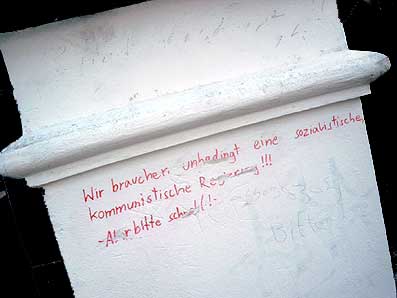 Wir brauchen unbedingt eine sozialistische,
kommunistische Regierung!!!
bitte
Bitte